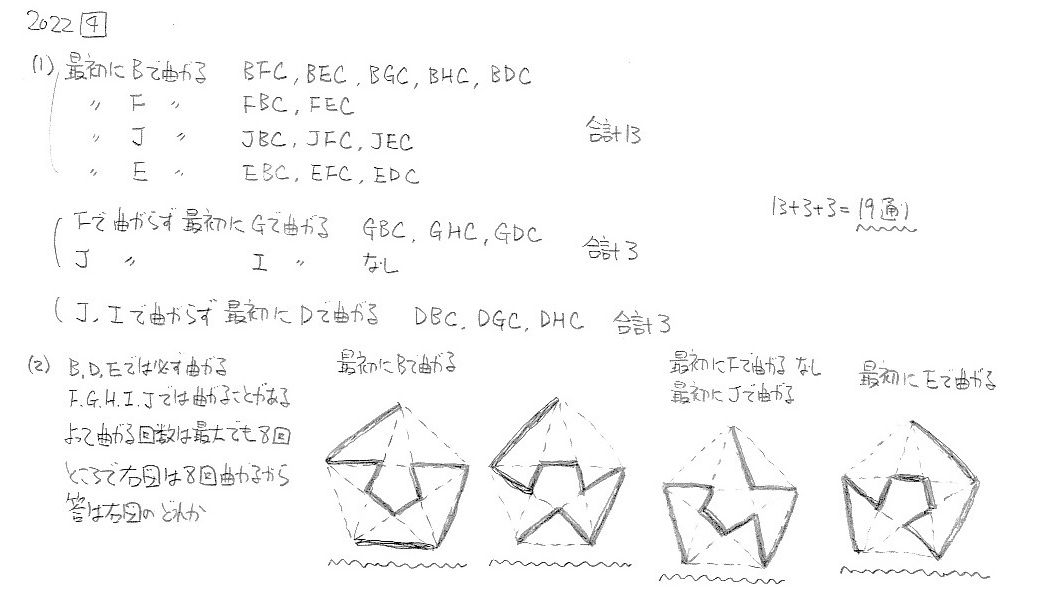 2022 4
(1) 最初にBで曲がる BFC, BEC, BGC, BHC, BDC
〃 F 〃 FBC, FEC
〃 J 〃 JBC, JFC, JEC 合計13
〃 E 〃 EBC, EFC, EDC
Fで曲がらず最初にGで曲がる GBC, GHC, GDC 合計3
J 〃 I 〃 なし
13+3+3=19通り
J, Iで曲がらず最初にDで曲がる DBC, DGC, DHC 合計3
(2) B,D,Eでは必ず曲がる
F.G.H.I.Jでは曲がることがある
よって曲がる回数は最大でも8回
ところで右図は8回曲がるから
答は右図のどれか
最初にBで曲がる
最初にFで曲がる なし
最初にJで曲がる
最初にEで曲がる